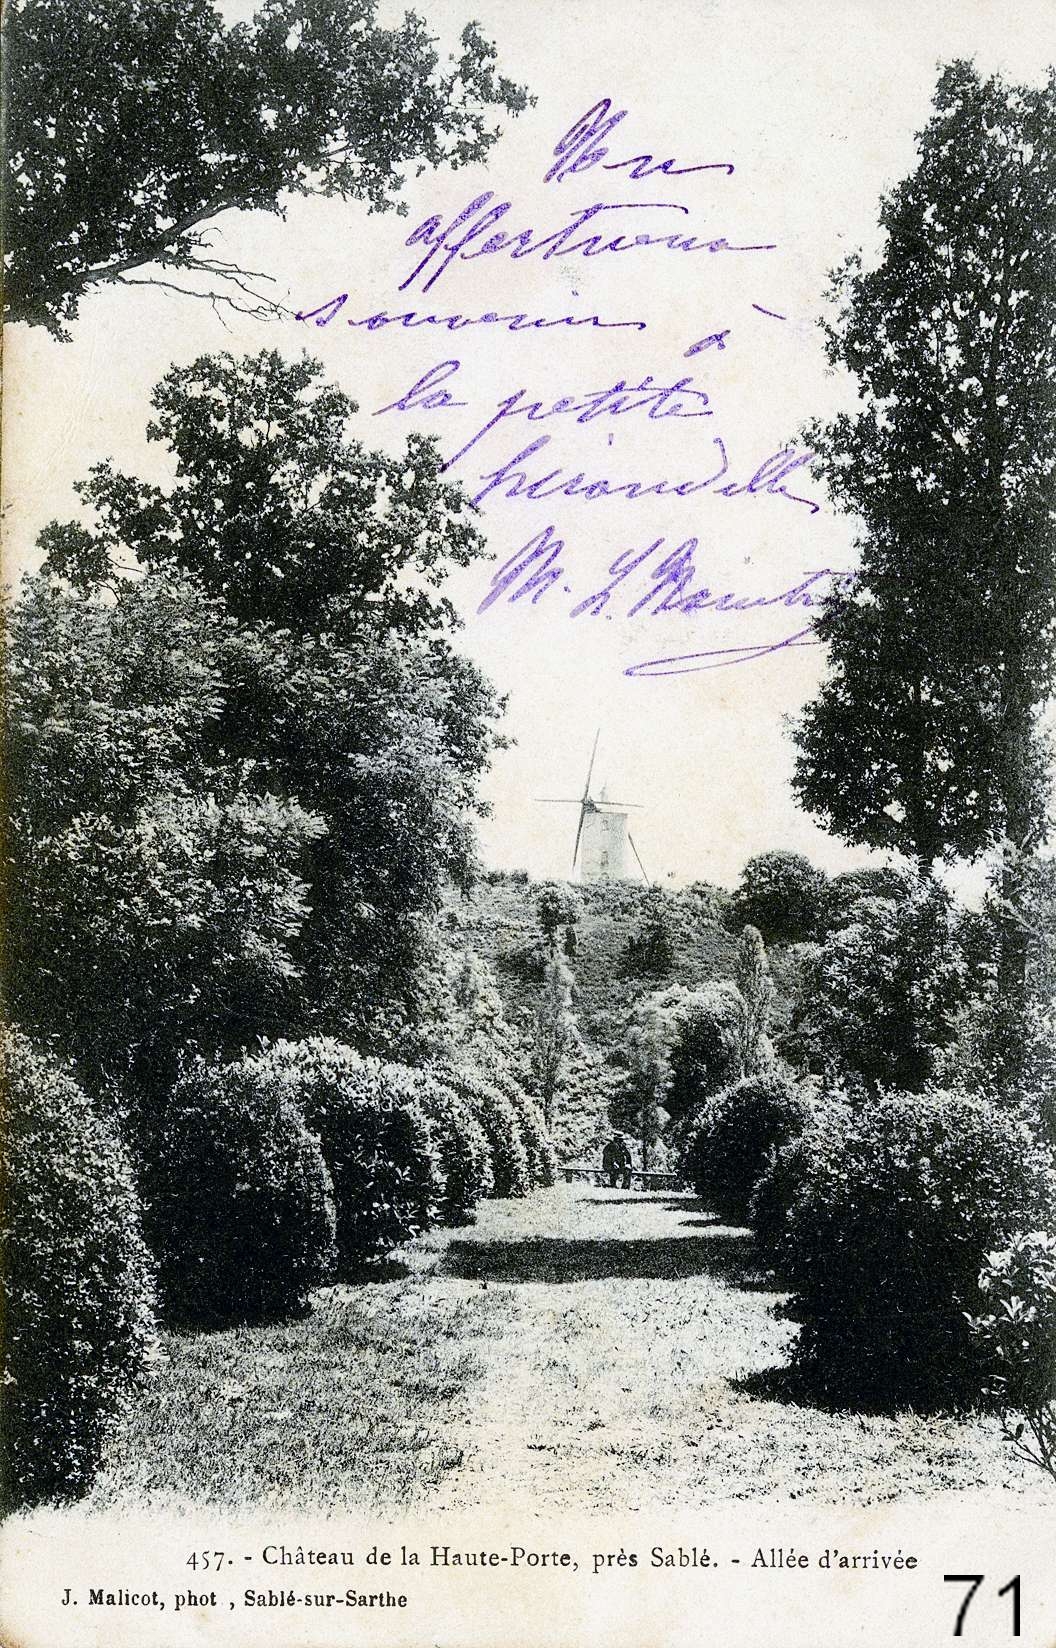 Mon
affectueux
souvenir à
la petite
hirondelle
M. L.
457. - Château de la Haute-Porte, près Sablé. - Allée d'arrivée
J. Malicot, phot , Sablé-sur-Sarthe
71